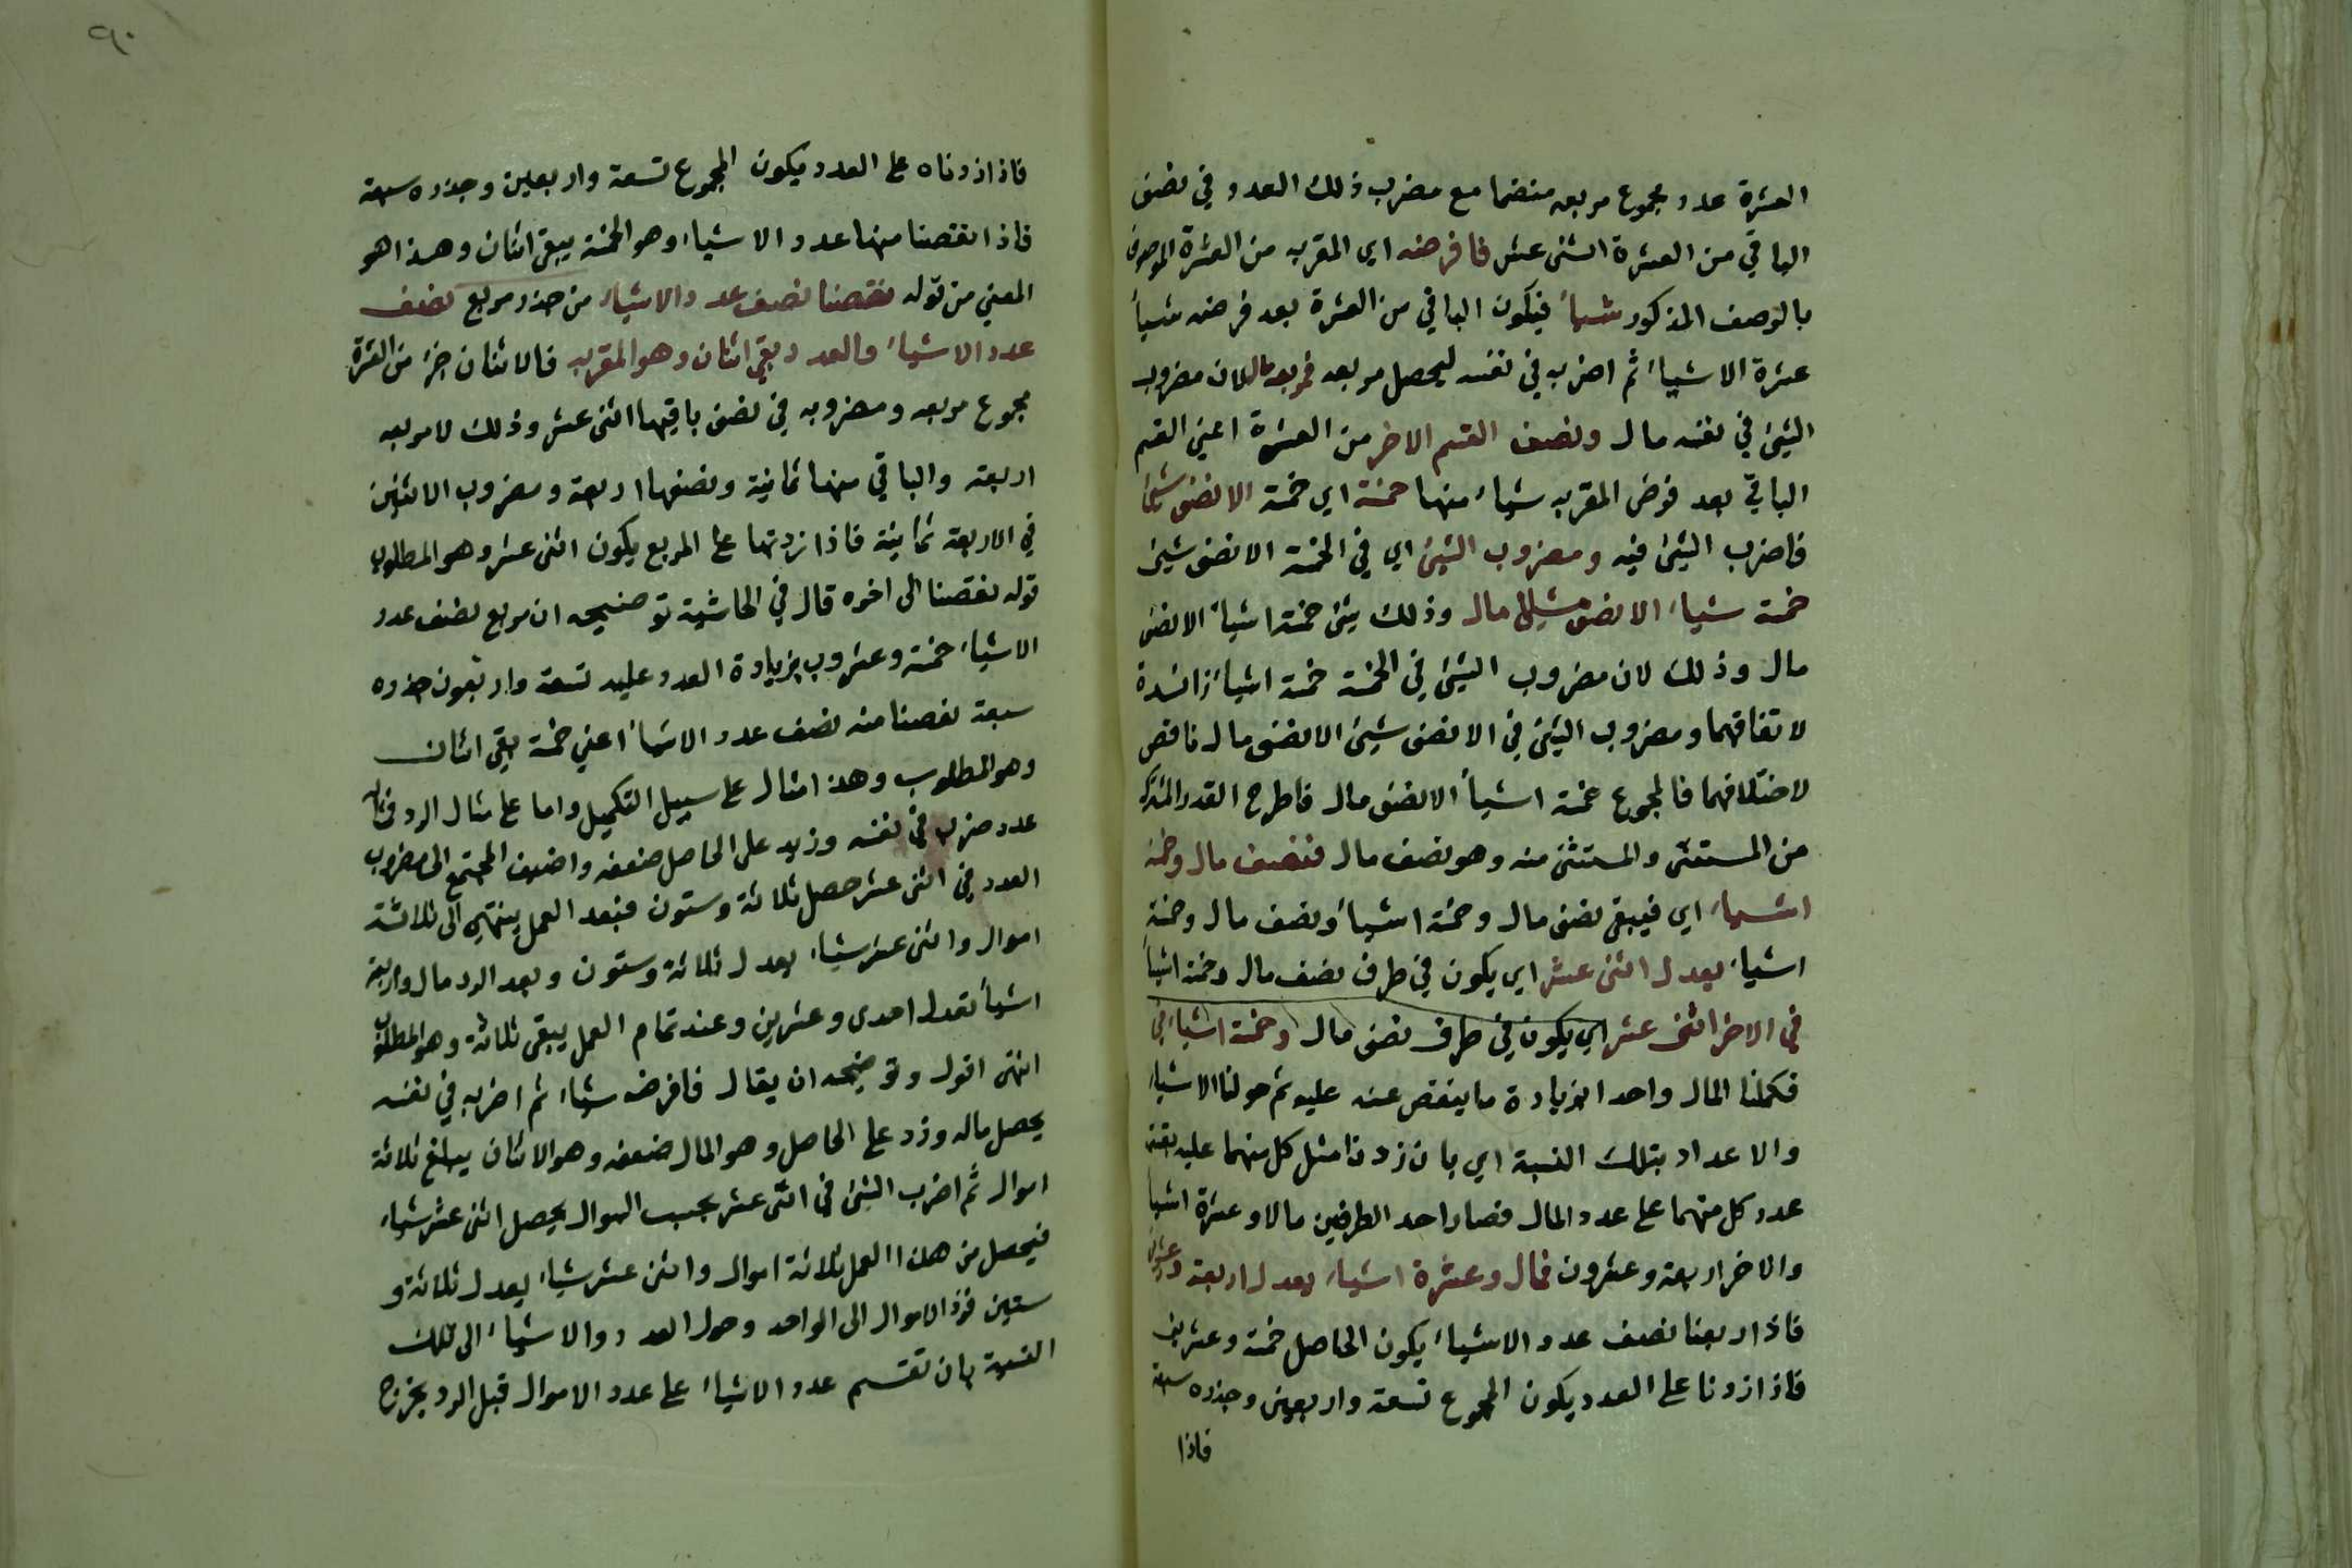 العشرة عدد مجموع مربعه منضما مع مضرب ذلك العدد في نصف
الباقي من العشرة اثنى عشر فافرضه اي المقر به من العشرة الموصوف
بالوصف المذكور شيأ فيكون الباقي من العشرة بعد فرضه شيأ
عشرة الا شياء ثم اضربه في نفسه ليحصل مربعه فمربعه مال لان مضروب
الشيئ في نفسه مال ونصف القسم الاخر من العشرة اعني القسم
الباقي بعد فرض المقر به شياء منها خمسة اي خمسة الا نصف شيئ
فاضرب الشيئ فيه ومضروب الشيئ اي في الخمسة الا نصف شيئ
خمسة شياء الا نصف مال وذلك خمسة اشيأ الا نصف
مال وذلك لان مضروب الشيئ في الخمسة خمسة اشيأ زائدة
لاتفاقهما ومضروب الشيئ في الا نصف شيئ الا نصف مال ناقص
لاختلافهما فالمجموع خمسة اشيأ الا نصف مال فاطرح القدر المشترك
من المستثنى والمستثنى منه وهو نصف مال فنصف مال وخمسة
اشياء اي فيبقى نصف مال وخمسة اشيأ ونصف مال وخمسة
اشياء يعدل اثنى عشر اي يكون في طرف نصف مال وخمسة اشيأ
في الاخر اثنى عشر اي يكون في طرف نصف مال وخمسة اشياء في
فكملنا المال واحدا بزيادة ما ينقص عنه عليه ثم حولنا الاشياء
والاعداد بتلك النسبة اي بان زدنا مثل كل منهما عليه
عدد كل منهما على عدد المال فصار احد الطرفين مالا وعشرة اشيا
والاخر اربعة وعشرون فمال وعشرة اشياء يعدل اربعة وعشرين
فاذا ربعنا نصف عدد الاشياء يكون الحاصل خمسة وعشرين
فاذا زدنا على العدد يكون المجموع تسعة واربعين وجذره سبعة
فاذا
٩٠
فاذا زدناه على العدد يكون المجموع تسعة واربعين وجذره سبعة
فاذا نقصنا منها عدد الاشياء وهو الخمسة يبقى اثنان وهذا هو
المعني من قوله نقصنا نصف عدد الاشياء من جذر مربع نصف
عدد الاشياء والعدد بقي اثنان وهو المقر به فالاثنان جزء من العشرة
مجموع مربعه ومضروبه في نصف باقيها اثنى عشر وذلك لا مربعه
اربعة والباقي منها ثمانية ونصفها اربعة ومضروب الاثنين
في الاربعة ثمانية فاذا زدتها على المربع يكون اثنى عشر وهو المطلوب
قوله نقصنا الى اخره قال في الحاشية توضيحه ان مربع نصف عدد
الاشياء خمسة وعشرون بزيادة العدد عليه تسعة واربعون جذره
سبعة نقصنا منه نصف عدد الاشياء اعني خمسة بقي اثنان
وهو المطلوب وهذا مثال على سبيل التكميل واما على مثال الرد
عدد ضرب في نفسه وزيد على الحاصل ضعفه واضيف المجتمع الى مضروب
العدد في اثنى عشر حصل ثلاثة وستون فبعد العمل ينتهى الى ثلاثة
اموال واثنى عشر شياء يعدل ثلاثة وستون وبعد الرد مال واربعة
اشيأ تعدل احدى وعشرين وعند تمام العمل يبقى ثلاثة وهو المطلوب
انتهى اقول وتوضيحه ان يقال فافرضه شياء ثم اضربه في نفسه
يحصل مال وزد على الحاصل وهو المال ضعفه وهو الاثنان يبلغ ثلاثة
اموال ثم اضرب الشيئ في اثنى عشر بحسب السوال يحصل اثنى عشر شياء
فيحصل من هذا العمل ثلاثة اموال واثنى عشر شياء يعدل ثلاثة و
ستين فرد الاموال الى الواحد وحول العدد والاشياء الى تلك
النسبة بان تقسم عدد الاشياء على عدد الاموال قبل الرد يخرج